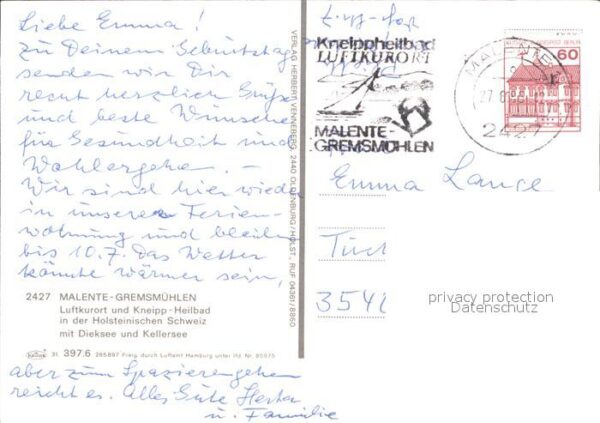 Liebe Emma!
Zu Deinem Geburtstag
senden wir Dir
recht herzlich Grüße
und beste Wünsche
für Gesundheit und
Wohlergehen. –
Wir sind hier wieder
in unserer Ferien-
wohnung und bleiben
bis 10.7. Das Wetter
könnte wärmer sein,
2427 MALENTE-GREMSMÜHLEN
Luftkurort und Kneipp-Heilbad
in der Holsteinischen Schweiz
mit Dieksee und Kellersee
31 397.6 265897 Freig. durch Luftamt Hamburg unter lfd. Nr.
aber zum Spazierengehen
reicht es. Alles Gute Herta
u. Familie
VERLAG HERBERT VENNEBERG, 2440 OLDENBURG/HOLST. RUF 04361/8860
Kneippheilbad
LUFTKURORT
MALENTE-
GREMSMÜHLEN
MALENTE
27
2427
DEUTSCHE BUNDESPOST BERLIN
60
Emma Lange
354
privacy protection
Datenschutz